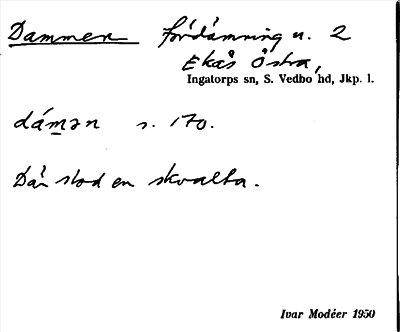 Dammen fördämning n. 2
Ekås Östra,
Ingatorps sn, S. Vedbo hd, Jkp. l.
dámən s. 170.
Där stod en skvalta.
Ivar Modéer 1950